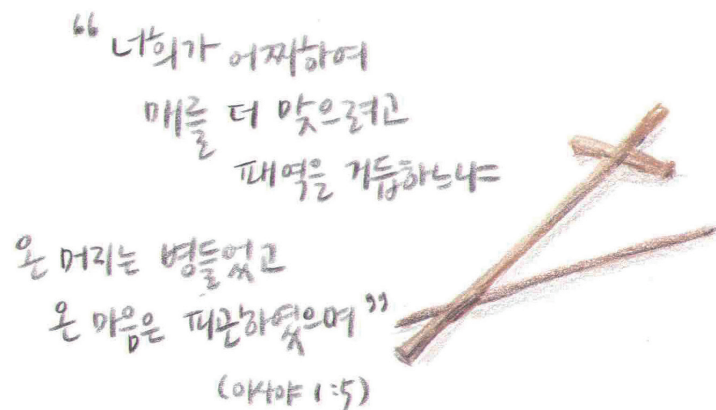 “너희가 어찌하여
매를 더 맞으려고
패역을 거듭하느냐
온 머리는 병들었고
온 마음은 피곤하였으며”
(이사야 1:5)